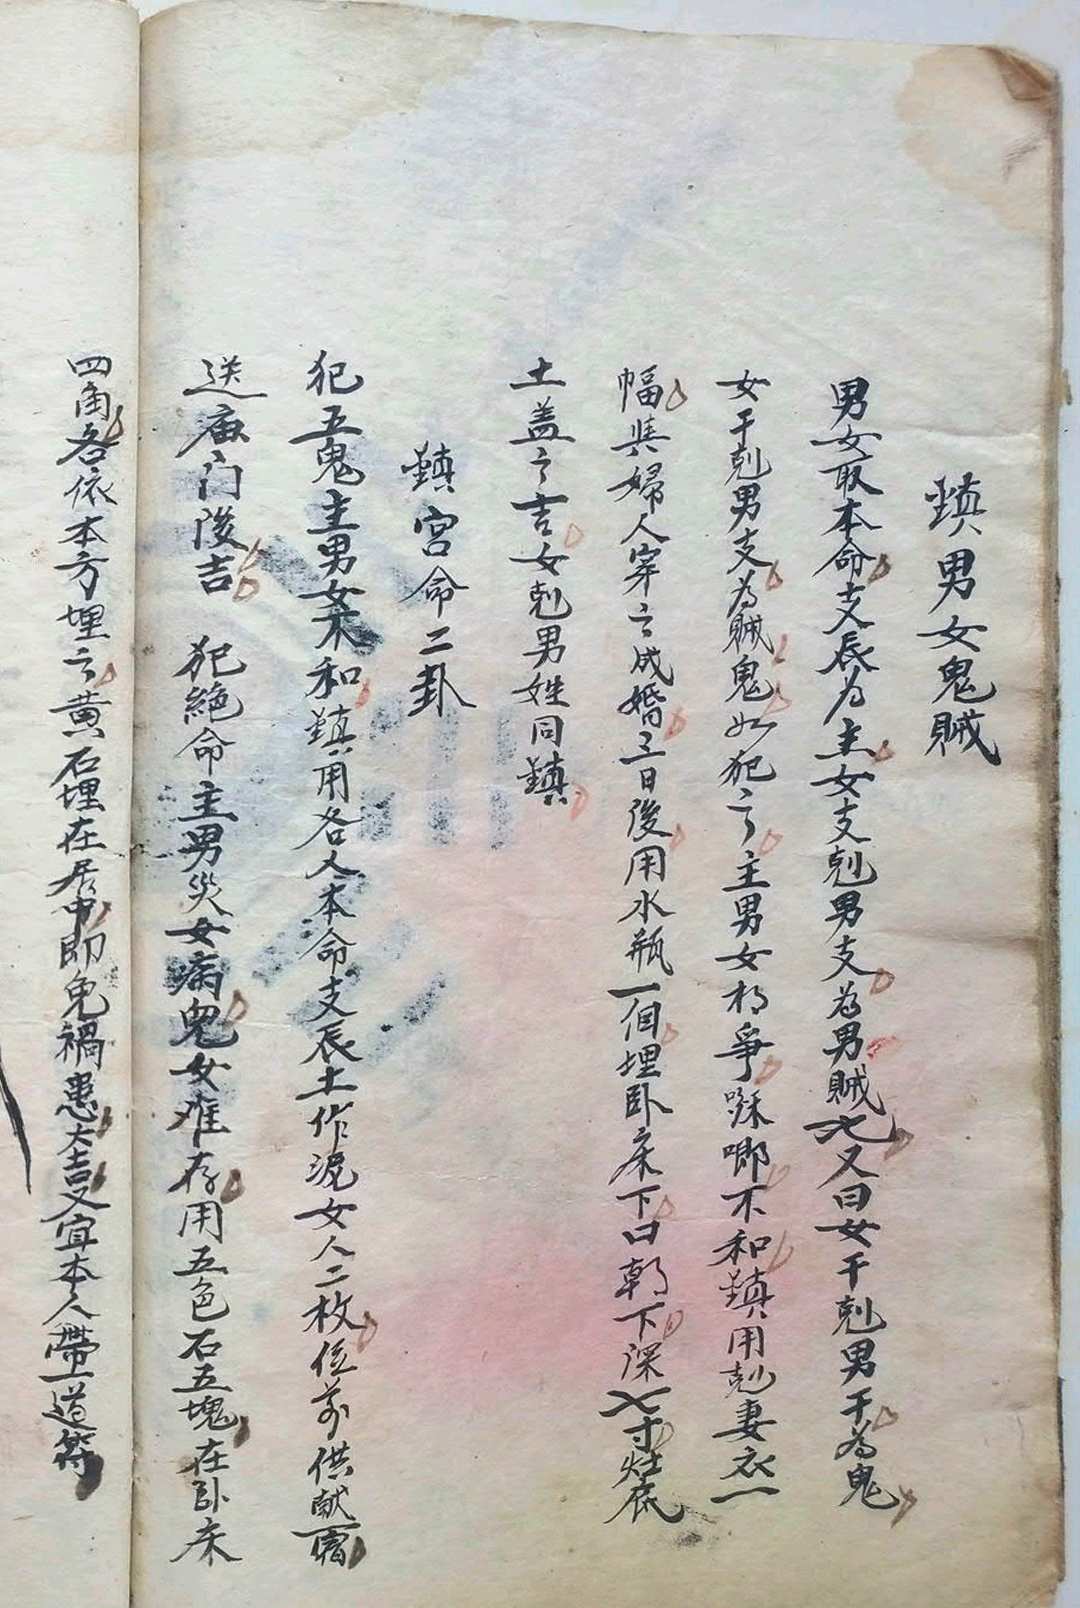 鎮男女鬼賊
男女取本命支辰為主女支剋男支為男賊也又曰女干剋男干為鬼
女干剋男支為賊鬼如犯之主男女相爭啾唧不和鎮用剋妻衣一
幅與婦人穿之成婚三日後用水瓶一個埋臥床下口朝下深七寸灶底
土盖之吉女剋男姓同鎮
鎮宮命二卦
犯五鬼主男女不和鎮用各人本命支辰土作泥女人二枚位前供献
送庙门後吉 犯絕命主男災女病鬼女难存用五色石五塊在卧床
四角各依本方埋之黄石埋在居中即免禍患大吉又宜本人帶一道符